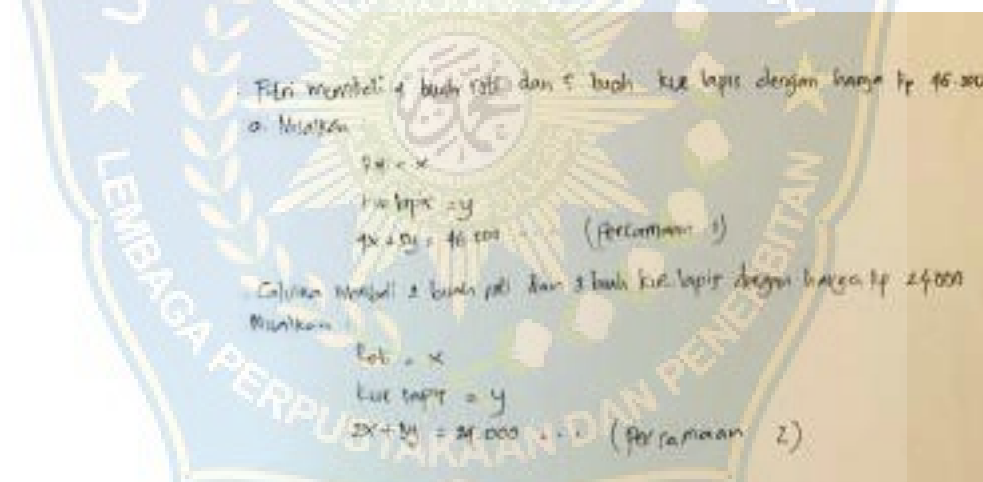 Fitri membeli 4 buah roti dan 5 buah kue lapis dengan harga Rp 46.000
a. Misalkan
= x
kue lapis = y
4x + 5y = 46 000 . . . (Persamaan 1)
membeli 2 buah roti dan 3 buah kue lapis dengan harga Rp 24.000
Misalkan
Roti = x
kue lapis = y
2x + 3y = 24.000 . . . (Persamaan 2)
LEMBAGA PERPUSTAKAAN DAN PENERBITAN